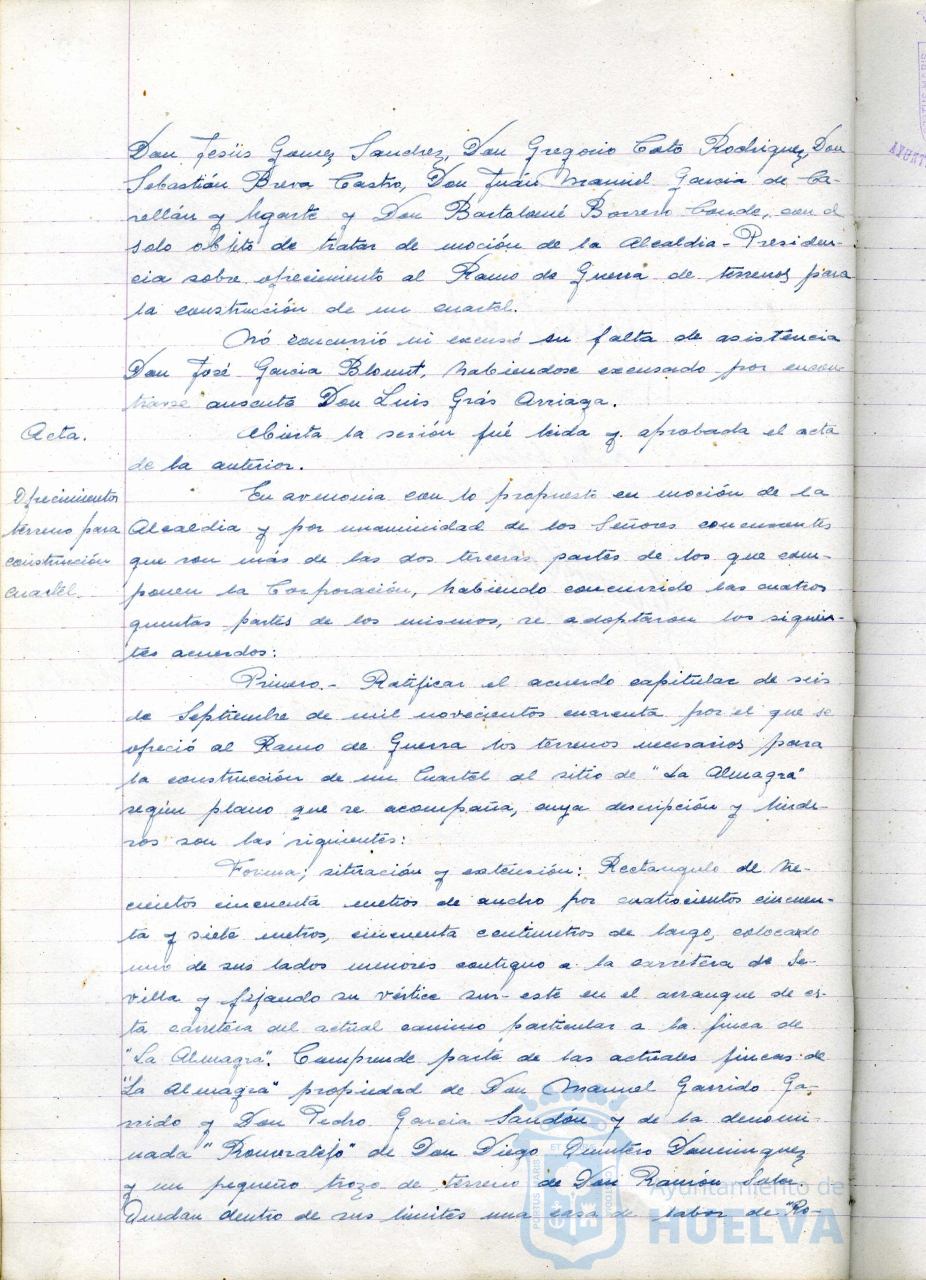 Don Jesús Gomez Sanchez, Don Gregorio Coto Rodriguez, Don
Sebastián Breva Castro, Don Juán Manuel Garcia de Ca-
rellán y Ugarte y Don Bartolomé Borrero Conde, con el
solo objeto de tratar de moción de la Alcaldia-Presiden-
cia sobre ofrecimiento al Ramo de Guerra de terrenos para
la construcción de un cuartel.
Nó concurrió ni excusó su falta de asistencia
Don José Garcia Blount, habiendose excusado por encon
trarse ausente Don Luis Grás Arriaga.
Acta.
Abierta la sesión fué leida y aprobada el acta
de la anterior.
Ofrecimientos
terreno para
construcción
cuartel
En armonia con lo propuesto en moción de la
Alcaldia y por unaminidad de los Señores concurrentes
que son más de las dos terceras partes de los que com-
ponen la Corporación, habiendo concurrido las cuatros
quintas partes de los mismos, se adoptaron los siguien-
tes acuerdos:
Primero.- Ratificar el acuerdo capitular de seis
de Septiembre de mil novecientos cuarenta por el que se
ofreció al Ramo de Guerra los terrenos necesarios para
la construcción de un Cuartel al sitio de "La Almagra"
según plano que se acompaña, cuya descripción y linde-
ros son las siguientes:
Forma; situación y extensión: Rectangulo de tre-
cientos cincuenta metros de ancho por cuatrocientos cincuen-
ta y siete metros, cincuenta centimetros de largo, colocado
uno de sus lados menores contiguo a la carretera de Se-
villa y fijando su vértice sur-este en el arranque de es-
ta carretera del actual camino particular a la finca de
"La Almagra". Comprende parte de las actuales fincas de
"La Almagra" propiedad de Don Manuel Garrido Ga-
rrido y Don Pedro Garcia Sandón y de la denomi-
nada "Romeralejo" de Don Diego Quintero Dominguez
y un pequeño trozo de terreno de Don Ramón Salas
Quedan dentro de sus limites una casa de labor de "Ro-
Ayuntamiento de
HUELVA
PORTUS MARIS
ET TERRE
CUSTODIA